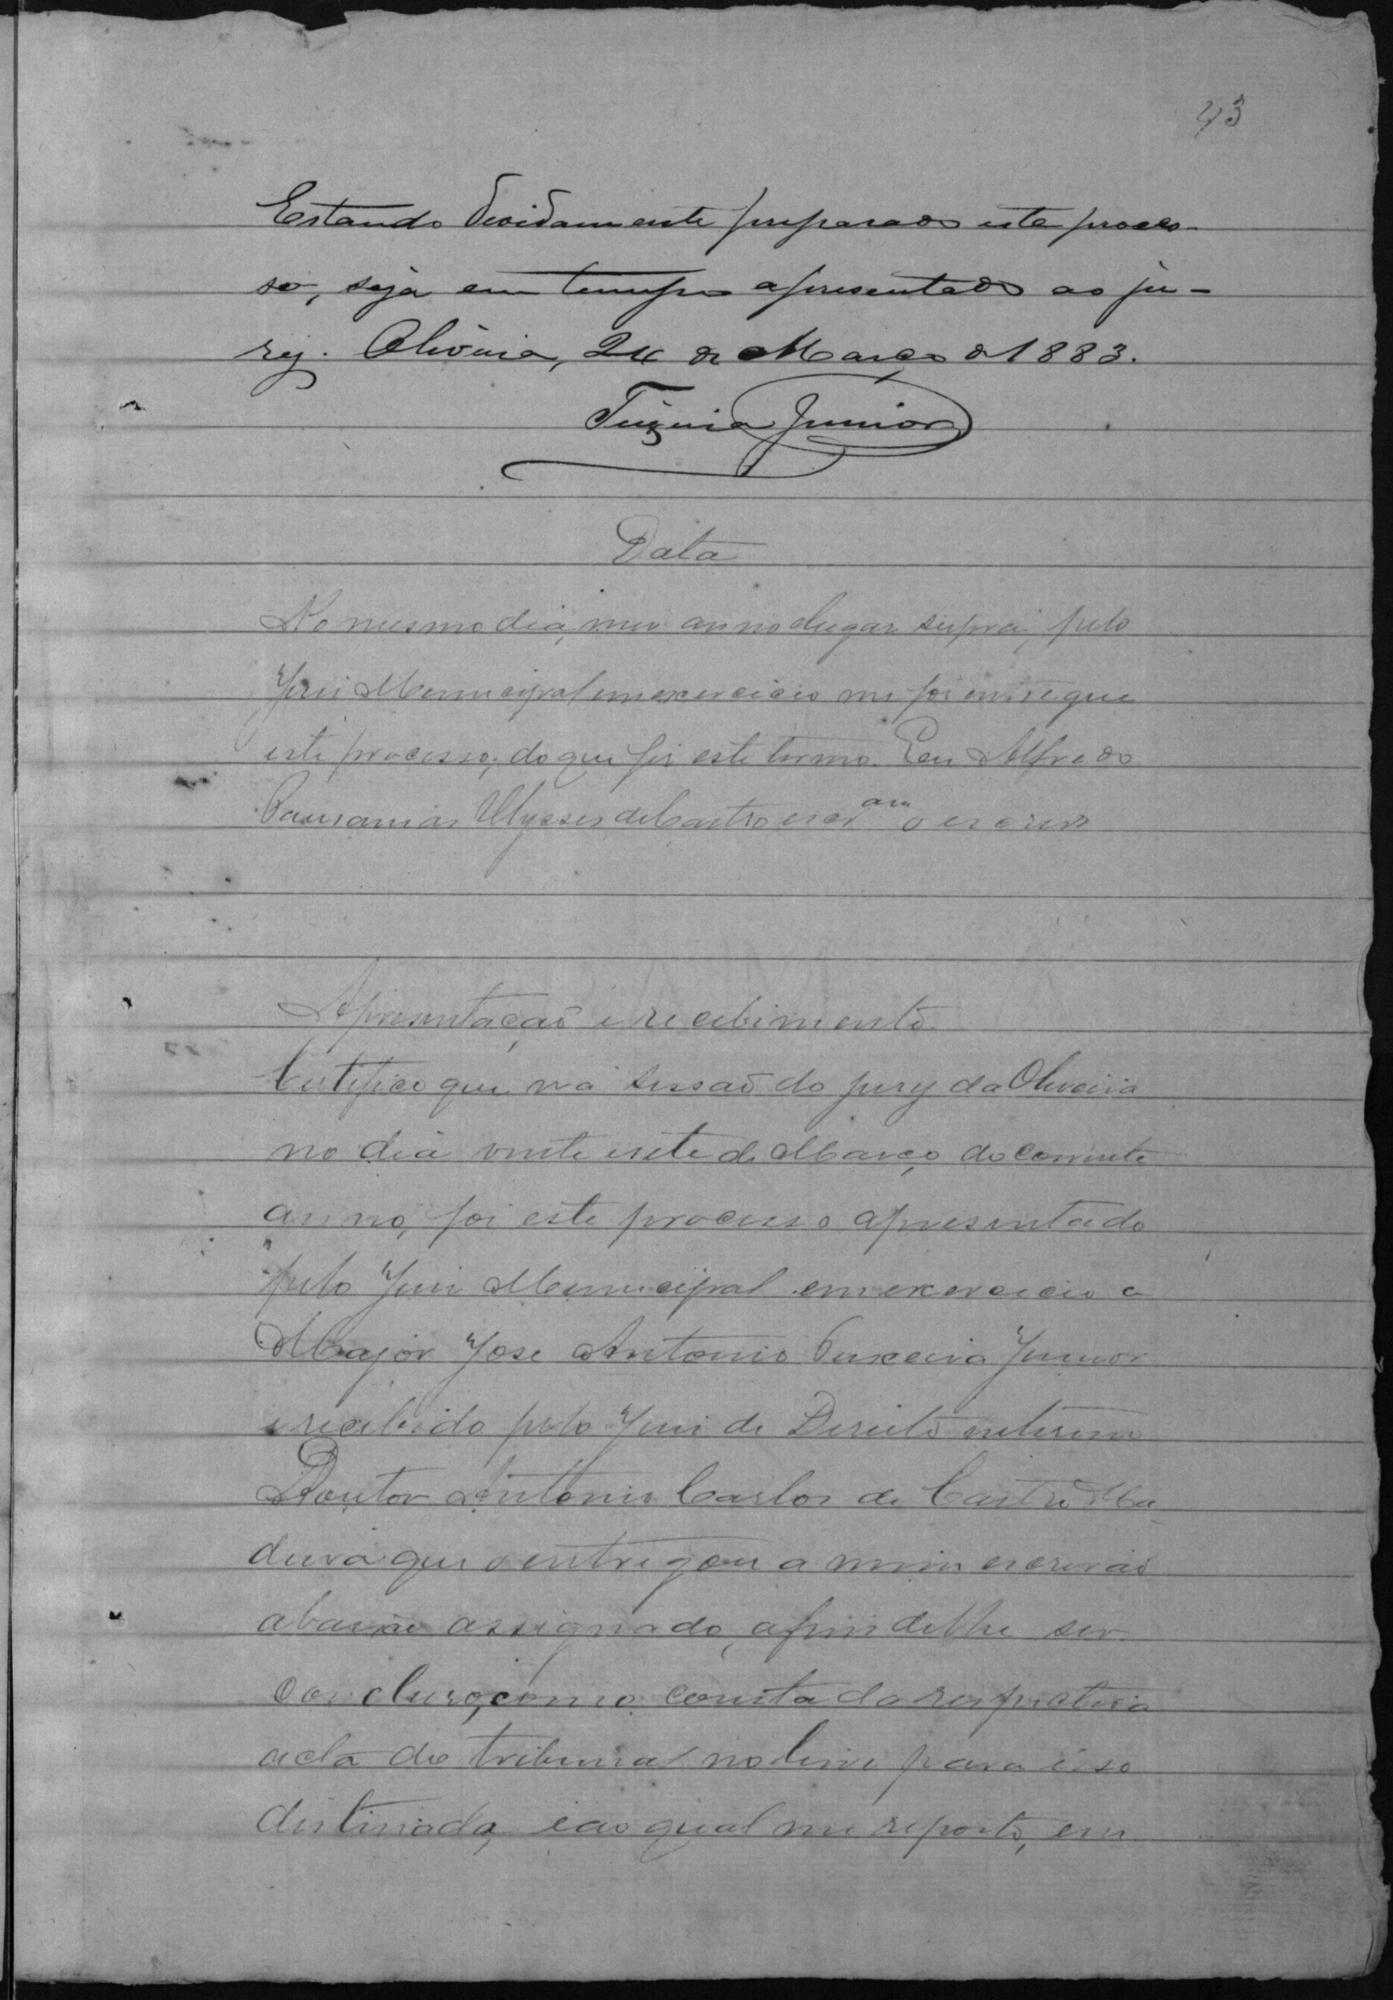 43
Estando devidamente preparado este proces-
so, seja em tempo apresentado ao ju-
ry. Oliveira, 24 de Março de 1883.
Teixeira Junior
Data
No mesmo dia, mez anno e lugar supra, pelo
Juiz Municipal em exercicio me foi entregue
este processo; do que fiz este termo. Eu Alfredo
Pausanias Ulysses de Castro escr.am o escrevi
Apresentação e recebimento.
Certifico que na sessão do jury da Oliveira
no dia vinte e sete de Março do corrente
anno, foi este processo apresentado
pelo Juiz Municipal em exercicio o
Major José Antonio Teixeira Junior
e recebido pelo Juiz de Direito interino
Doutor Antonio Carlos de Castro Ma
dura que o entregou a mim escrivão
abaixo assignado, afim de lhe ser
concluso, como consta da respectiva
acta do tribunal no livro para isso
destinado, e ao qual me reporto, em